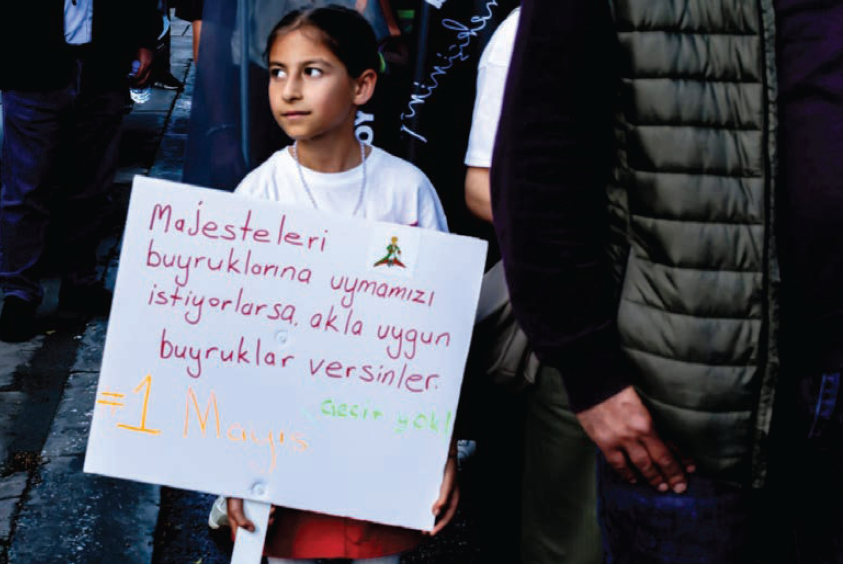 Majesteleri
buyruklarına uymamızı
istiyorlarsa, akla uygun
buyruklar versinler.
Gecit yok!
=1 Mayıs